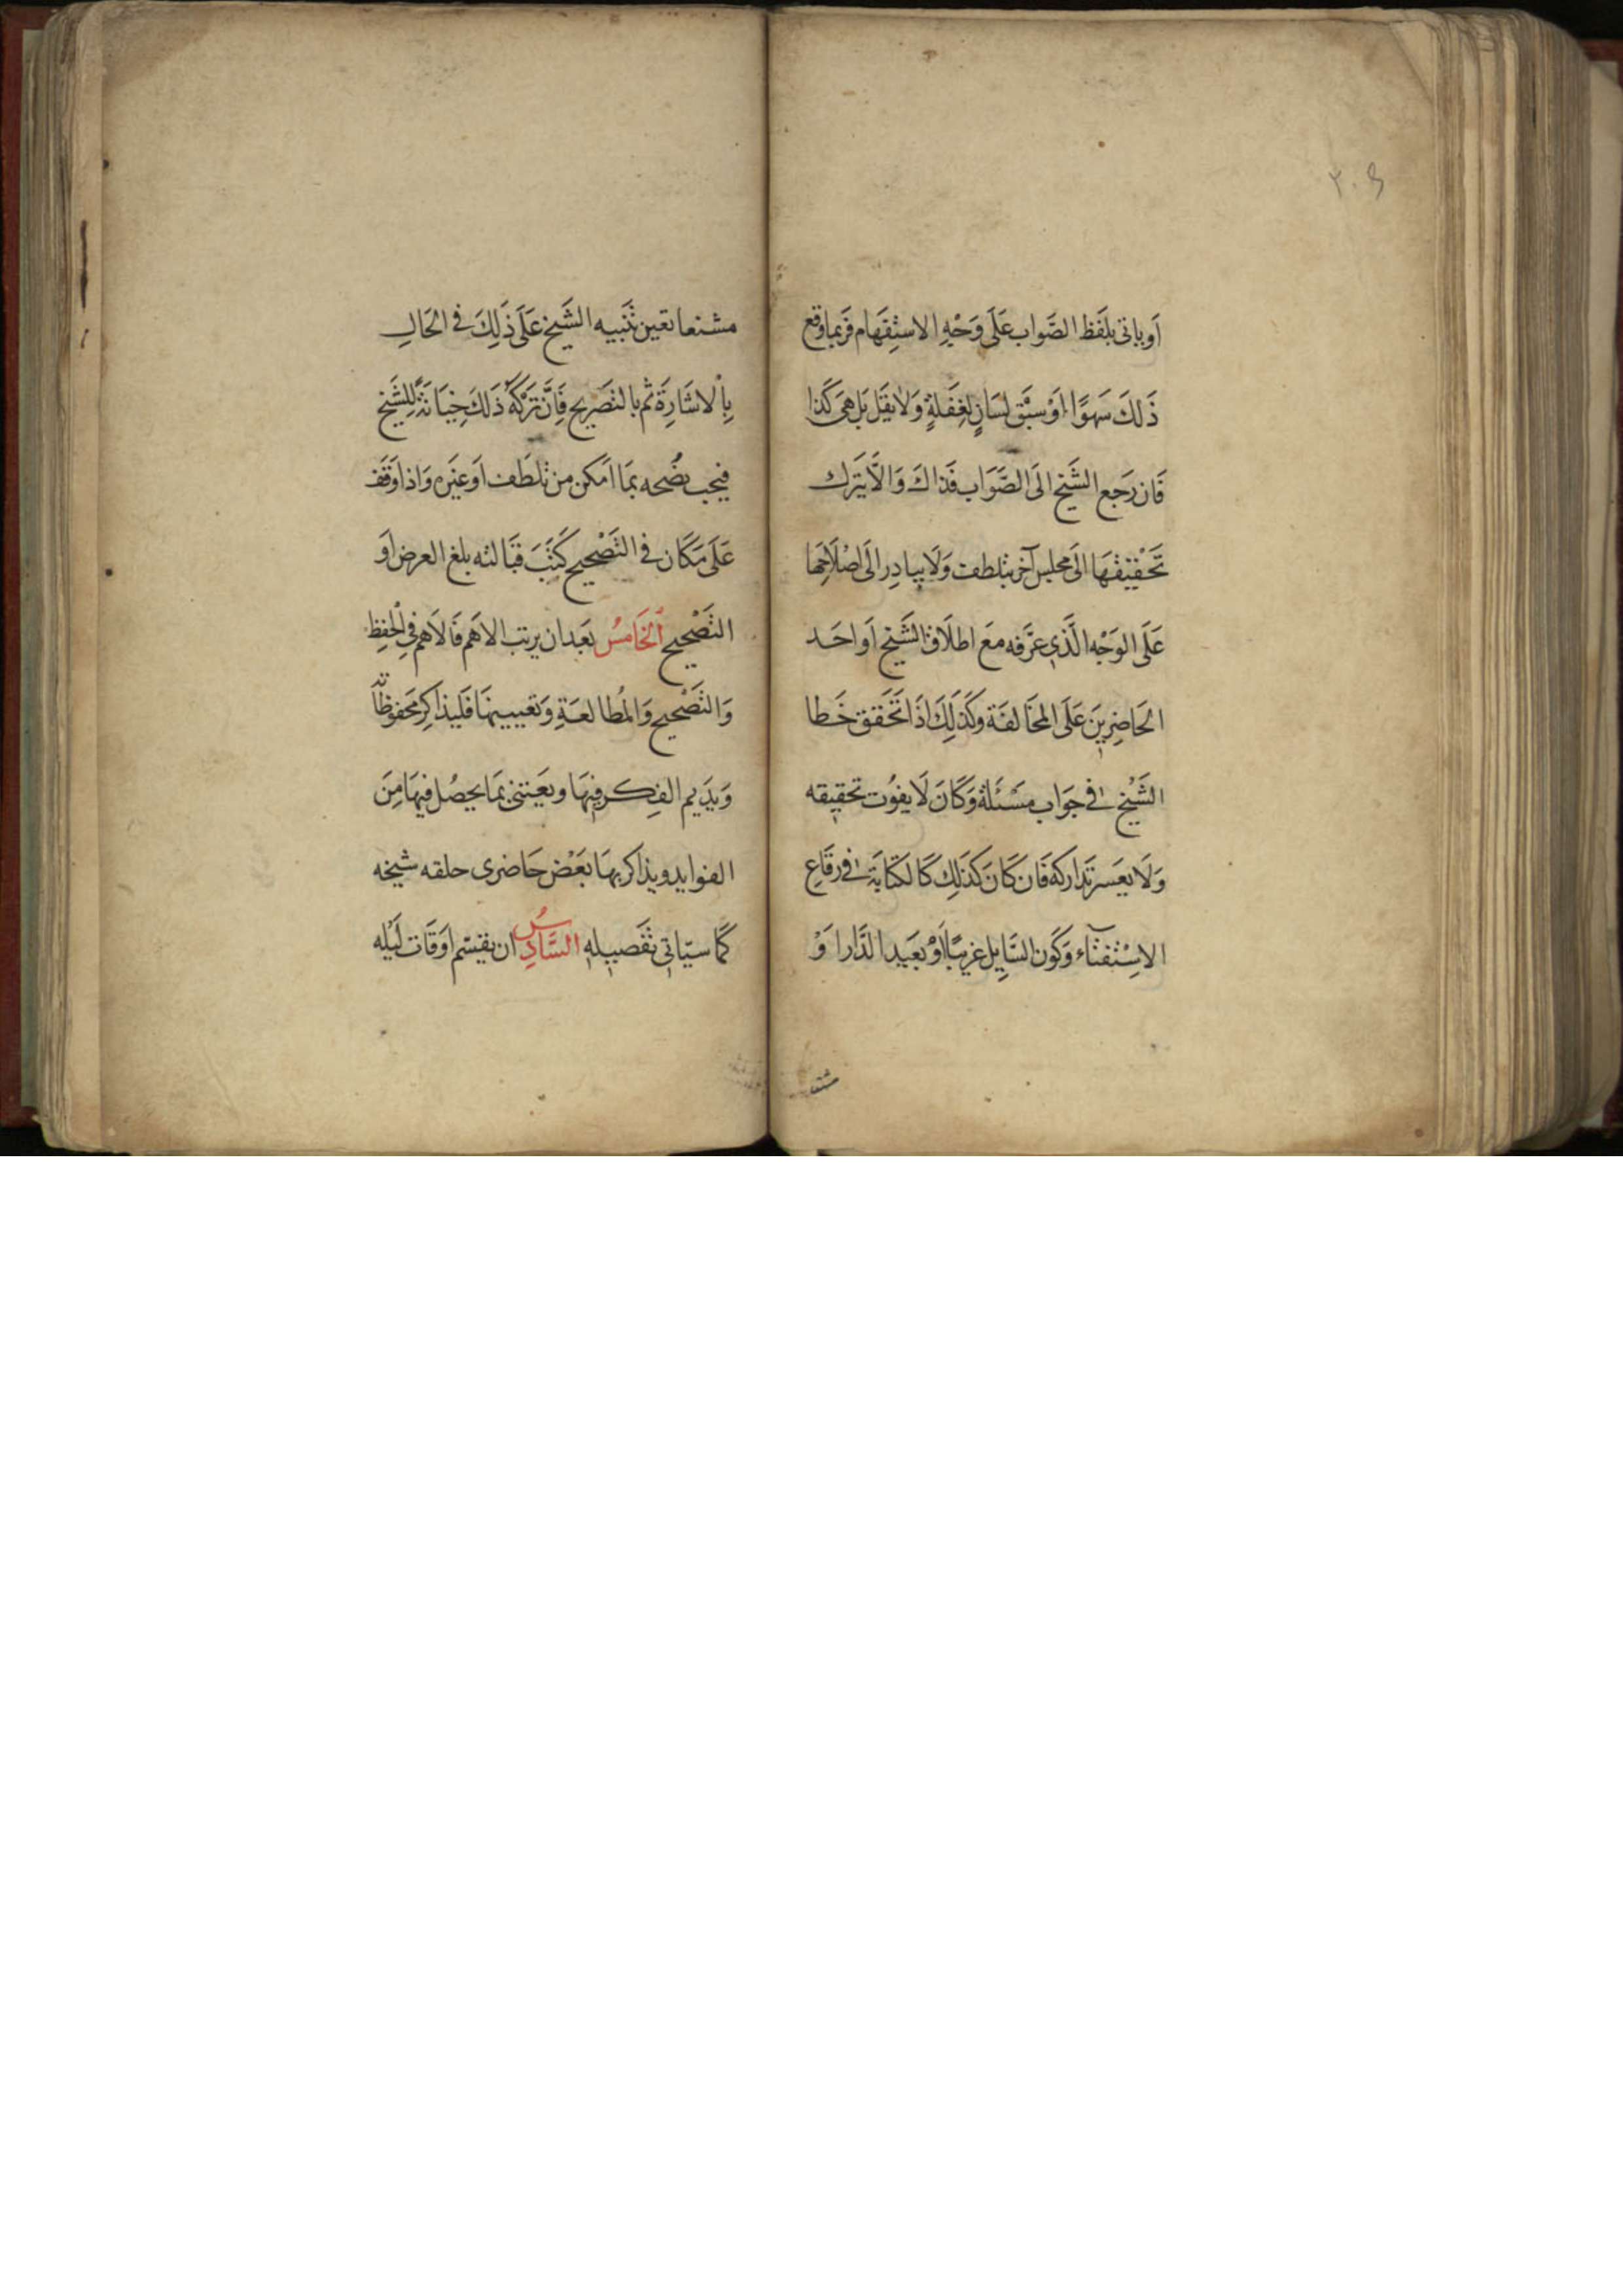 ٢٠٤
اَوياتى بلَفظ الصَّواب عَلَى وَجْهِ الاسْتِفهَام فرَبماوقع
ذَلكَ سَهوًا اَوْ سبَق لسَانٍ لغِفَلةٍ وَلا يقَل بَل هىَ كَذا
فَان رَجع الشَيخ الىَ الصَّوَاب فَذاكَ وَالاَّ يَترَك
تَحْقيقهَا الَى مجلس آخر بتلطف وَلَا يبادِر الَى اصْلَاحِهَا
عَلَى الوَجْه الَّذىِ عَرَّفه معَ اطلاَق الشَيخ اَو احَد
الحَاضِرِينَ عَلَى المخَالفَة وكَذلِكَ اذَا تَحَقق خَطا
الشَيْخ فى جَوَاب مَسْئَلة وَكَانَ لَا يفوُت تحقيقه
وَلَا يعَسر تدَاركه فَان كَانَ كذَلِك كَالكتَابَة فى رقَاعِ
الاِسْتفتَآء وَكَون السَايِل غريبًا اَوْ بعَيد الدَّار اَوْ
مشنعا
مشنعا تعين تنَبيه الشَيخ عَلَى ذلِكَ فى الحَالِ
بِاْلاشَارَة ثم بالتصَريح فَانَّ تَركَهُ ذَلكَ خِيَانَةً للِشَيخ
فيجب نصُحه بمَا امَكن من تلطَف اَو غيَره وَاذا وَقَف
عَلَى مَكَان فى التصَحْيح كَتَبَ قبَالته بلغ العرض اَو
التصَحْيح الخَامسُ بعَد ان يرتب الاهَم فَالاَهم فىِ الحفِظِ
وَالتصَحْيح وَالمُطالعَةِ وَتعيينهَا فَليذَاكِر محَفوظَاته
وَيدَيم الفِكر فيهَا وَيعَتنى بمَا يحصُل فيهَا مِنَ
الفوايد ويذاكر بهَا بعَض حَاضرى حلقه شيخه
كَمَا سيَاتى تفَصيله السَّادِسُ ان يقسّم اوَقَات لَيْله